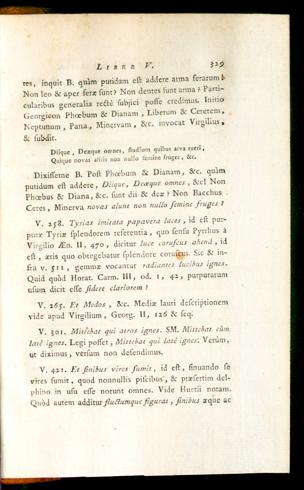 LIBER V. 329
res, inquit B. quàm putidam est addere atma ferarum!
Non leo & aper feræ sunt? Non dentes sunt arma? Parti-
cularibus generalia rectè subjici posse credimus. Initio
Georgicon Phœbum & Dianam, Liberum & Cererem,
Neptunum, Pana, Minervam, &c. invocat Virgilius,
& subdit.
Diique, Deæque omnes, studium quibus arva tueri,
Quique novas alitis non nullo semine fruges, &c.
Dixissetne B. Post Phœbum & Dianam, &c. quàm
putidum est addere, Diique, Deæque omnes, &c! Non
Phœbus & Diana, &c. sunt dii & deæ? Non Bacchus
Ceres, Minerva novas alunt non nullo semine fruges?
V. 258. Tyrias imitata papavera luces, id est pur-
puræ Tyriæ splendorem referentia, quo sensu Pyrrhus à
Virgilio Æn. II, 470, dicitur luce coruscus ahenâ, id
est, æris quo obtegebatur splendore coruscus. Sic & in-
fra v. 511, gemmæ vocantur radiantes lucibus ignes.
Quid quòd Horat. Carm. III, od. 1, 42, purpuratum
usum dicit esse sidere clariorem?
V. 265. Et Medos, &c. Mediæ lauri descriptionem
vide apud Virgilium, Georg. II, 126 & seq.
V. 301. Mittebat qui aeros ignes. SM. Mittebat cùm
latè ignes. Legi posset, Mittebat qui latè ignes. Verùm,
ut diximus, versum non defendimus.
V. 421. Et finibus vires sumit, id est, sinuando se
vires sumit, quod nonnullis piscibus, & præsertim del-
phino in usu esse norunt omnes. Vide Huetii notam.
Quòd autem additur fluctumque figurat, finibus æque ac